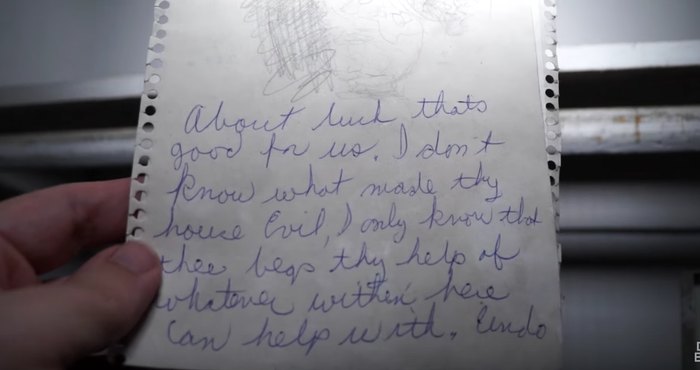 About luck, thats
good for us. I don't
know what made thy
house Evil, I only know that
thee begs thy help of
whatever within here
can help with. Undo